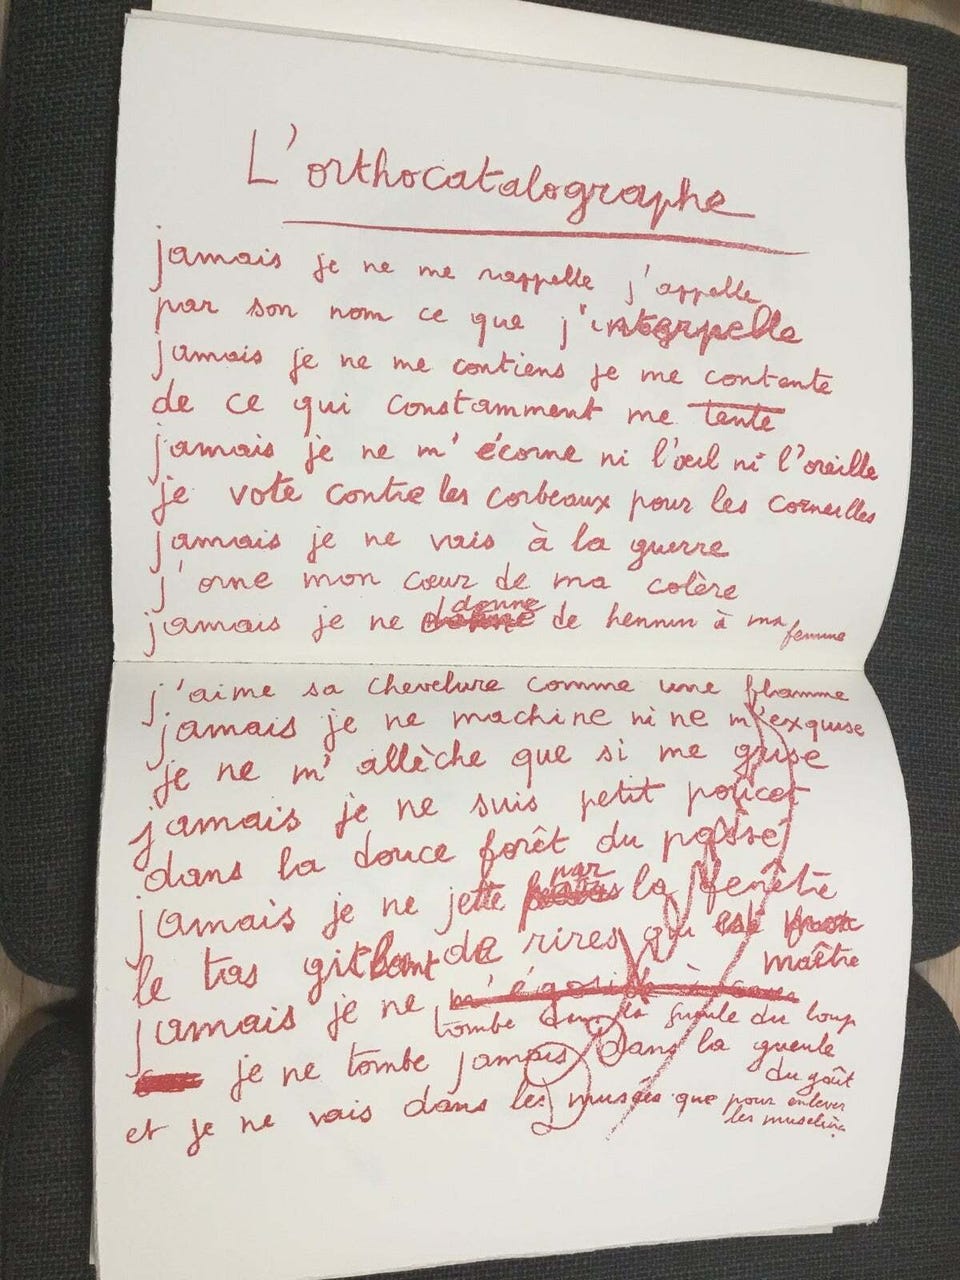 L'orthocatalographe
jamais je ne me rappelle j'appelle
par son nom ce que j'interpelle
jamais je ne me contiens je me contente
de ce qui constamment me tente
jamais je ne m'écorne ni l'œil ni l'oreille
je vote contre les corbeaux pour les corneilles
jamais je ne vais à la guerre
j'orne mon cœur de ma colère
jamais je ne donne de hennin à ma femme
j'aime sa chevelure comme une flamme
jamais je ne machine ni ne m'exquise
je ne m'allèche que si me grise
jamais je ne suis petit poucet
dans la douce forêt du passé
jamais je ne jette par la fenêtre
le tas de rires qui est maître
jamais je ne tombe dans la gueule du loup
je ne tombe jamais dans la gueule du goût
et je ne vais dans les musées que pour enlever les muselières